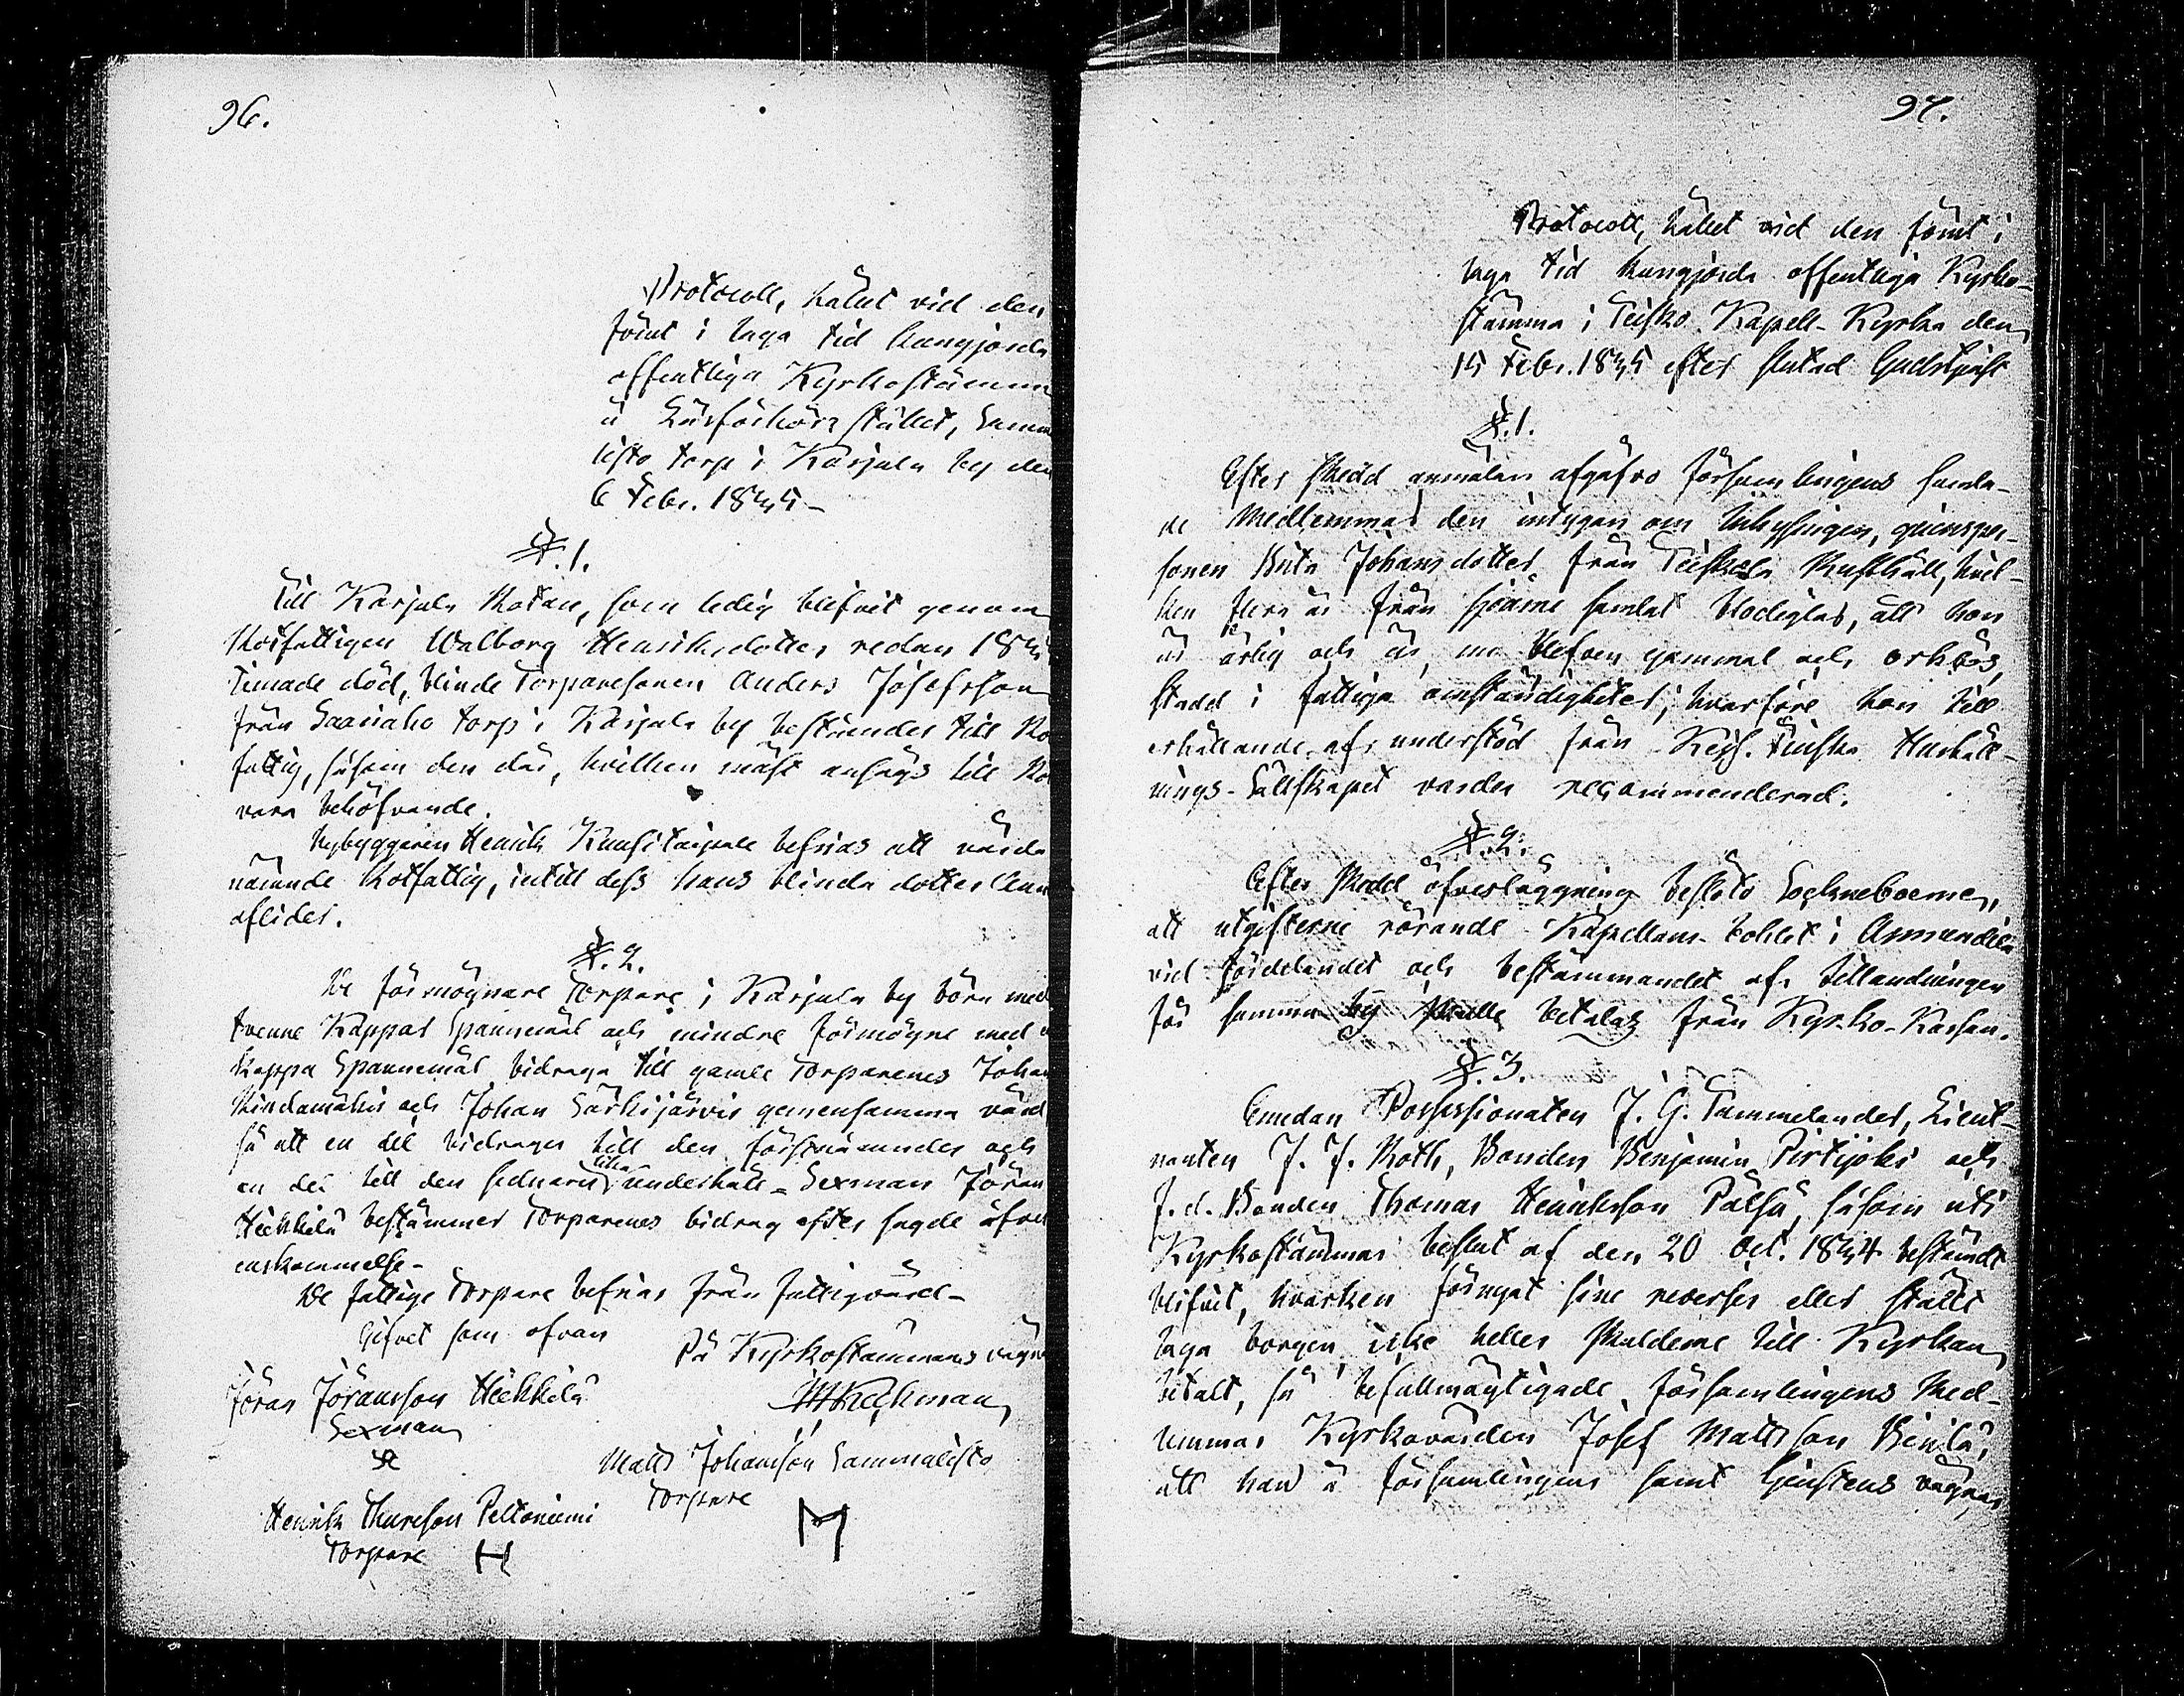 96.
Protocoll, hållit vid den
förut i laga tid kungjorda
offentliga Kyrkostämma
å Läsförhörs stället, Samma
listo torp i Karjula by den
6 Febr. 1845 -
§. 1.
Till Karjula Rotan, som ledig blifvit genom
Rotfattigen Walborg Henriksdotter redan
timade död, blinde Torparesonen Anders Josefsson
från Saariaho torp i Karjula by bestämdes till Ro
fattig, såsom den där, hvilken mäst ansågs till Ro
vara behöfvande.
Nybyggaren Henrik Kuusitaipale befrias att vårda
nämnde Rotfattig, intill dess hans blinda dotter Ann
aflider.
§. 2.
De förmögnare Torpare i Karjula by böra med
tvenne Kappar Spannemål och mindre förmögne med e
Kappa Spannemål bidraga till gamle Torparenes Johan
Rindamäkis och Johan Särkijärvis gemensamma vård
så att en del bidrager till den förstnämndes och
en del till den sednares underhåll - Sexman Jöran
Heikkilä bestämmer Torparenes bidrag efter sagde öfver
enskommelse -
De fattige Torpare befrias från fattigvård -
Gifvet som ofvan
På Kyrkostämmans vägnar
Jöran Göransson Heikkilä
Sexman
Matts Johansson Sammalisto
Torpare
M
Henrik Thureson Peltoniemi
Torpare H
97.
Protocoll, hållet vid den förut i
laga tid kungjorda offentliga Kyrko-
stämma i Teisko Kapell-Kyrka den
15 Febr. 1845 efter slutad Gudstjenst
§. 1.
Efter skedd anmälan afgåfvo församlingens samla-
de Medlemmar den intygan om Inhysingen, qvinsper-
sonen Brita Johansdotter från Teiskola Rusthåll, hvil-
ken flera år från sjöarne samlat blodiglar, att hon
är ärlig och är, nu blefven gammal och orkeslös,
stadd i fattiga omständigheter; hvarföre hon till
erhållande af understöd från Kejs. Finska Hushåll-
nings-Sällskapet varder recommenderad.
§. 2.
Efter skedd öfverläggning besloto Sockneboerne,
att utgifterne rörande Kapellans-bohlet i Ammandila
vid fördelandet och bestämmandet af tillandningen
för samma by skulle betalas från Kyrko-Kassan.
§. 3.
Emedan Possessionaten J. G. Tammelander, Lieut-
nanten J. J. Roth, Bonden Benjamin Pirtijoki och
f.d. Bonden Thomas Henriksson Pälsä, såsom uti
Kyrkostämmas beslut af den 20 Oct. 1844 bestämdt
blifvit, hvarken förnyat sine reverser eller ställt
laga borgen, icke heller skulderne till Kyrkan
betalt, så befullmägtigade församlingens Med-
lemmar Kyrkovärden Josef Mattsson
att han å församlingens samt tjenstens vägnar